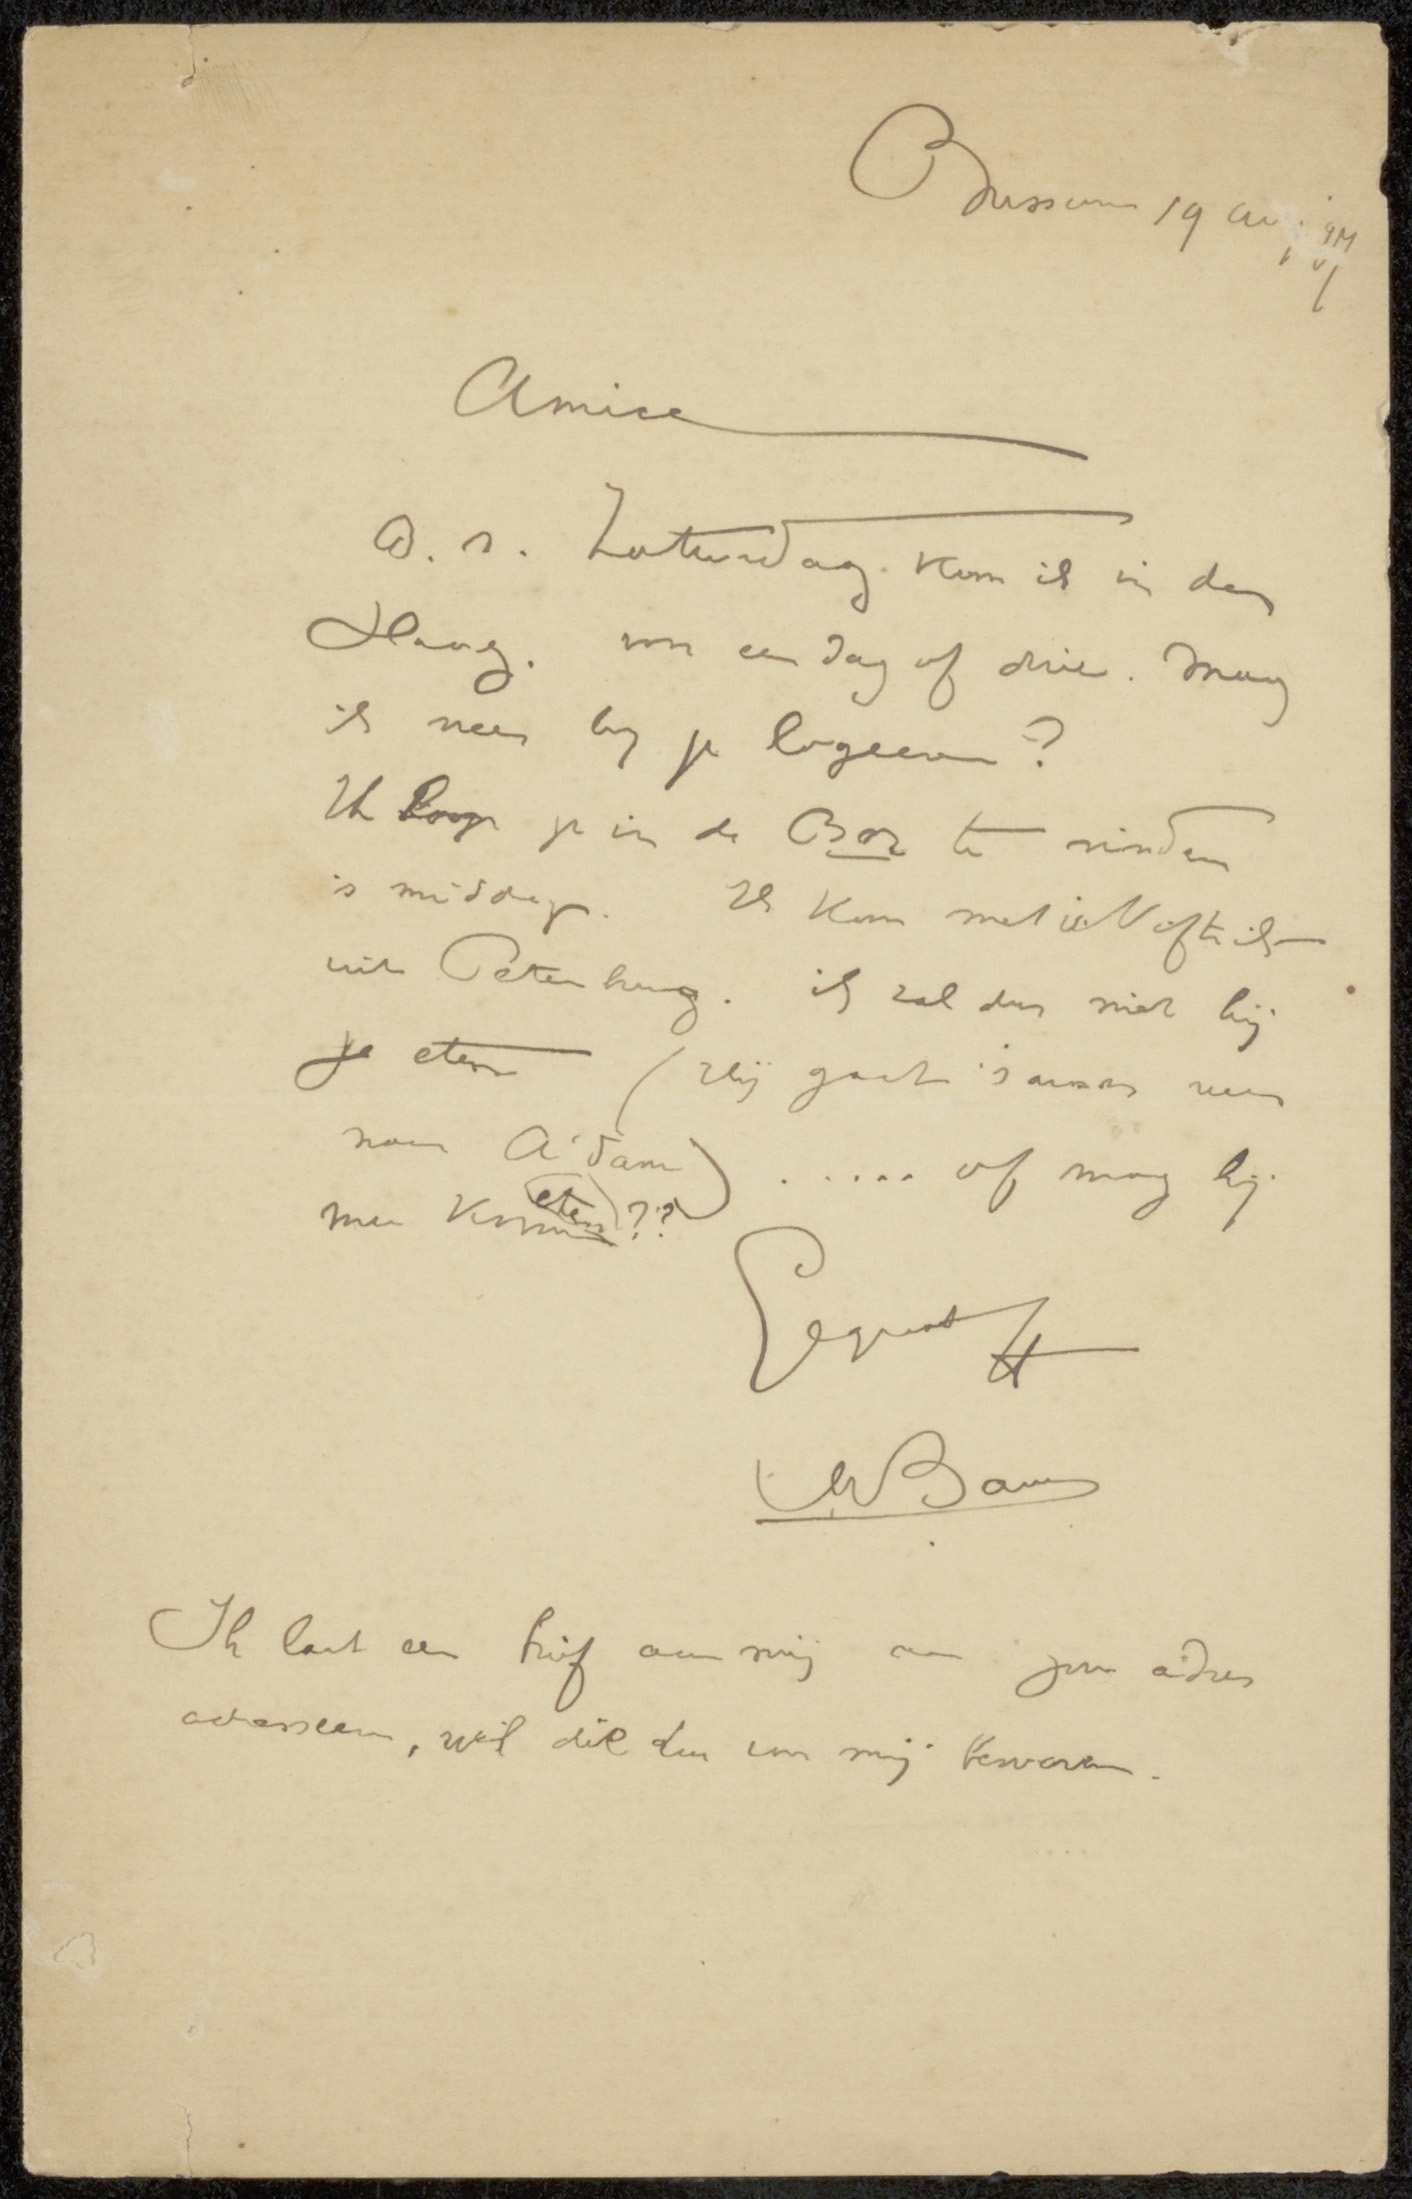 Bussum 19 Aug
Amice
A. s. Zaturdag kom ik in den
Haag. voor een dag of drie. Mag
ik weer bij je logeeren?
Ik hoop je in de Boz te vinden
's middags. Ik kom met
uit Petersburg. ik zal dus niet bij
je eten (Hij gaat 's avonds weer
naar A'dam) ..... of mag hij
mee komen (eten)??
Gegroet
Bauer
Ik laat een brief aan mij aan jouw adres
adresseeren, wil die dan voor mij bewaren.